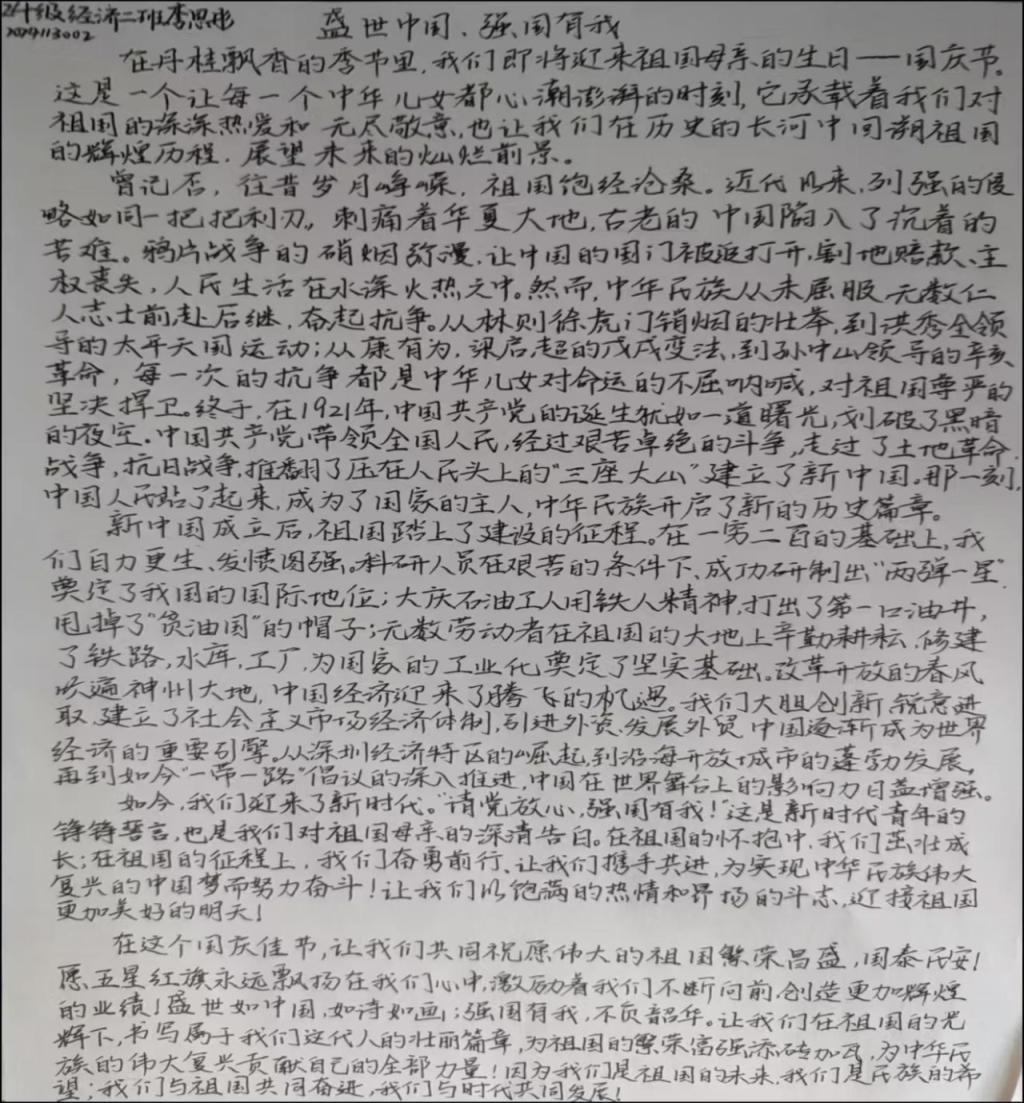 24级经济二班李思彤
盛世中国、强国有我
2024113002
在丹桂飘香的季节里,我们即将迎来祖国母亲的生日——国庆节。
这是一个让每一个中华儿女都心潮澎湃的时刻,它承载着我们对
祖国的深深热爱和无尽敬意,也让我们在历史的长河中回溯祖国
的辉煌历程,展望未来的灿烂前景。
曾记否,往昔岁月峥嵘,祖国饱经沧桑。近代以来,列强的侵
略如同一把把利刃,刺痛着华夏大地,古老的中国陷入了沉着的
苦难。鸦片战争的硝烟弥漫,让中国的国门被迫打开,割地赔款、主
权丧失,人民生活在水深火热之中。然而,中华民族从未屈服,无数仁
人志士前赴后继,奋起抗争。从林则徐虎门销烟的壮举,到洪秀全领
导的太平天国运动;从康有为,梁启超的戊戌变法,到孙中山领导的辛亥
革命,每一次的抗争都是中华儿女对命运的不屈呐喊,对祖国尊严的
坚决捍卫。终于,在1921年,中国共产党的诞生犹如一道曙光,划破了黑暗
的夜空。中国共产党带领全国人民,经过艰苦卓绝的斗争,走过了土地革命
战争,抗日战争,推翻了压在人民头上的“三座大山”建立了新中国。那一刻,
中国人民站了起来,成为了国家的主人,中华民族开启了新的历史篇章。
新中国成立后,祖国踏上了建设的征程。在一穷二白的基础上,我
们自力更生、发愤图强。科研人员在艰苦的条件下、成功研制出“两弹一星”,
奠定了我国的国际地位;大庆石油工人用铁人精神,打出了第一口油井,
甩掉了“贫油国”的帽子;无数劳动者在祖国的大地上辛勤耕耘,修建
了铁路,水库,工厂,为国家的工业化奠定了坚实基础。改革开放的春风
吹遍神州大地,中国经济迎来了腾飞的机遇。我们大胆创新,锐意进
取,建立了社会主义市场经济体制,引进外资,发展外贸,中国逐渐成为世界
经济的重要引擎。从深圳经济特区的崛起,到沿海开放城市的蓬勃发展,
再到如今“一带一路”倡议的深入推进,中国在世界舞台上的影响力日益增强。
如今,我们迎来了新时代。“请党放心,强国有我!”这是新时代青年的
铮铮誓言,也是我们对祖国母亲的深情告白。在祖国的怀抱中,我们茁壮成
长;在祖国的征程上,我们奋勇前行、让我们携手共进,为实现中华民族伟大
复兴的中国梦而努力奋斗!让我们以饱满的热情和昂扬的斗志,迎接祖国
更加美好的明天!
在这个国庆佳节,让我们共同祝愿伟大的祖国繁荣昌盛,国泰民安!
愿五星红旗永远飘扬在我们心中,激励着我们不断向前,创造更加辉煌
的业绩!盛世如中国,如诗如画;强国有我,不负韶华。让我们在祖国的光
辉下,书写属于我们这代人的壮丽篇章,为祖国的繁荣富强添砖加瓦,为中华民
族的伟大复兴贡献自己的全部力量!因为我们是祖国的未来,我们是民族的希
望;我们与祖国共同奋进,我们与时代共同发展!